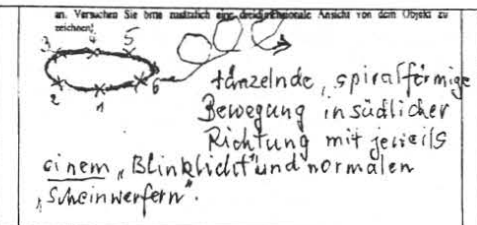 an. Versuchen Sie bitte zusätzlich eine dreidimensionale Ansicht von dem Objekt zu
zeichnen!
3 4 5
2 1 6
tänzelnde, spiralförmige
Bewegung in südlicher
Richtung mit jeweils
einem „Blinklicht" und normalen
„Scheinwerfern".